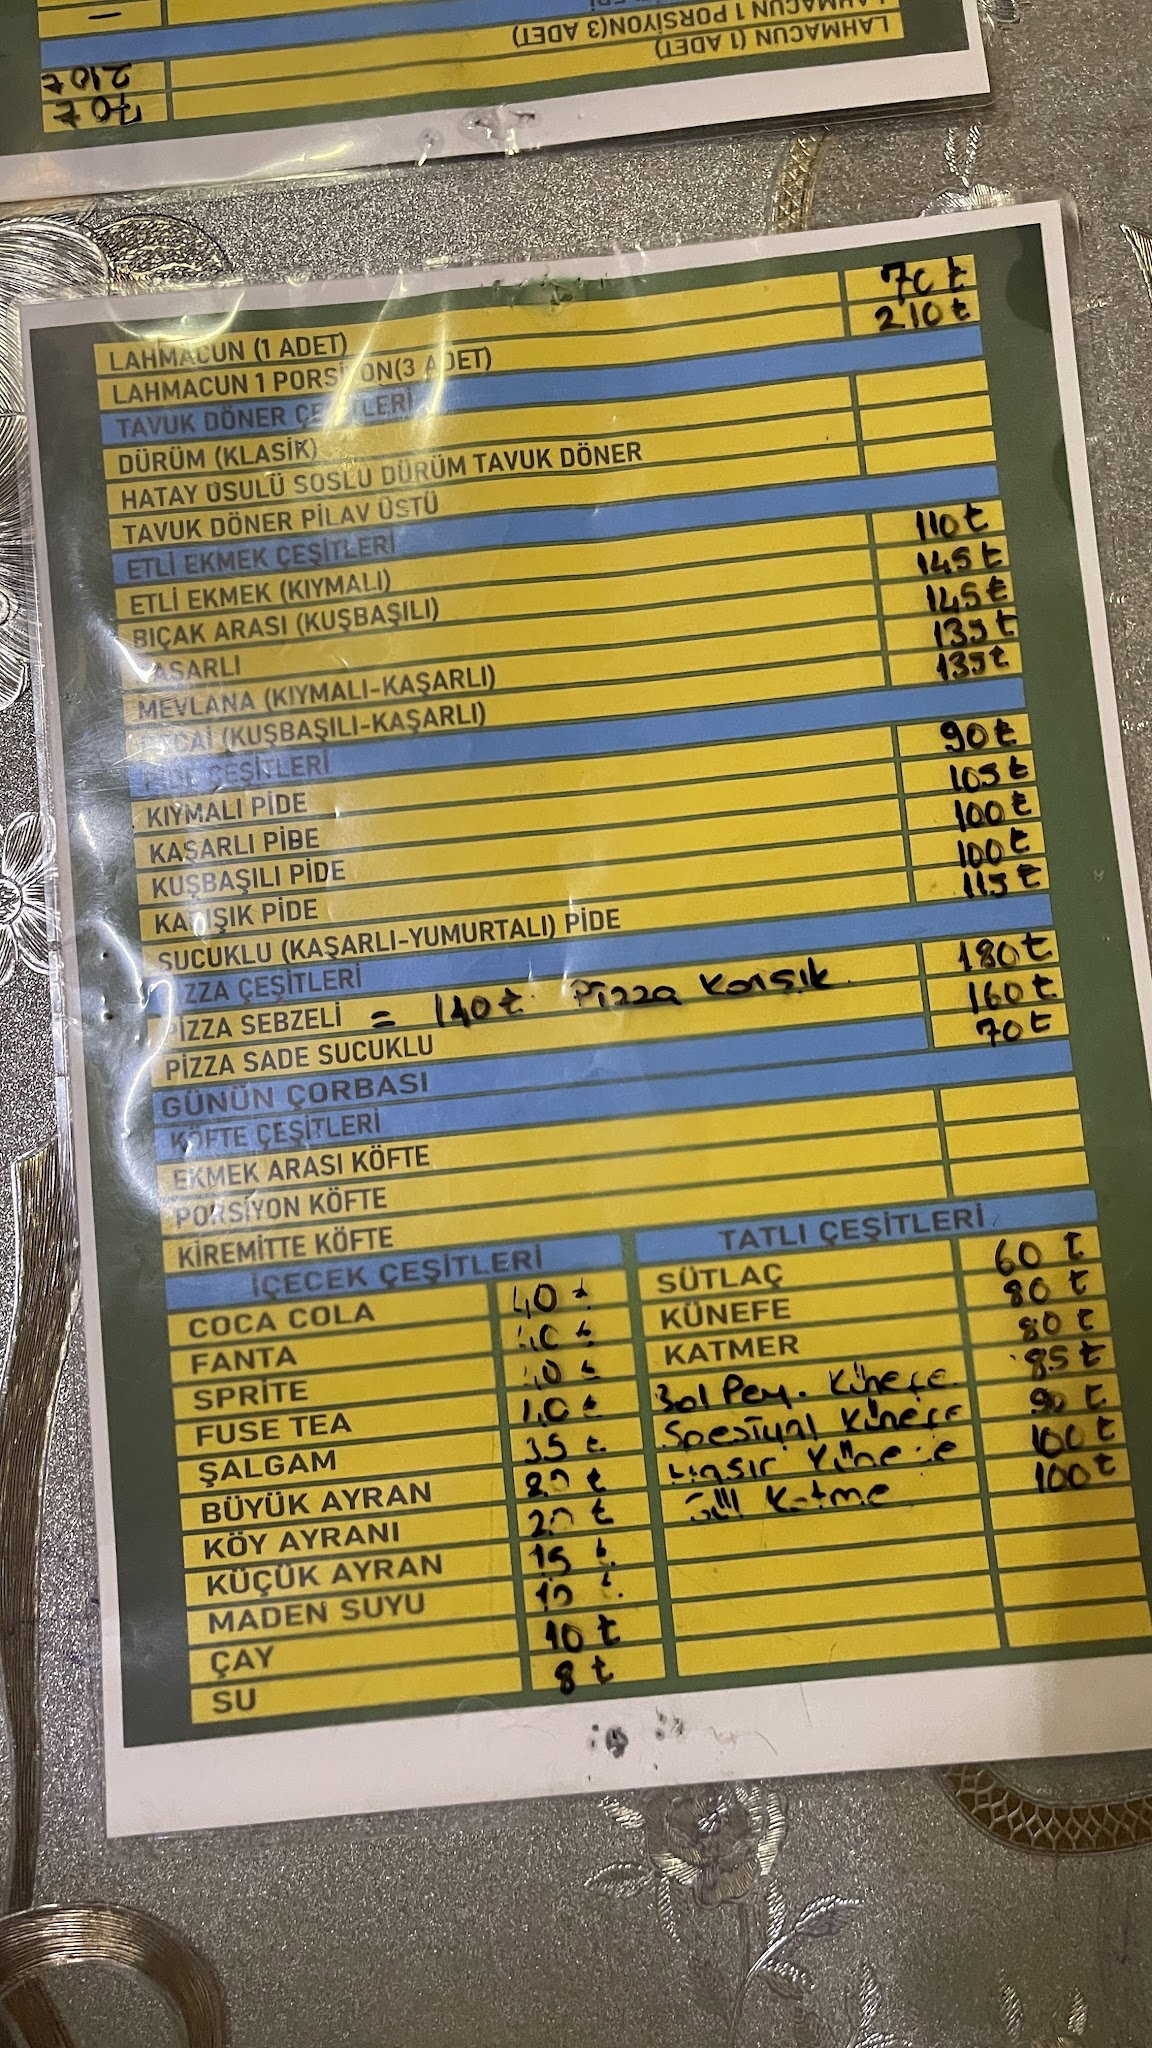 LAHMACUN 1 PORSİYON(3 ADET) 210 ₺
LAHMACUN (1 ADET) 70 ₺
LAHMACUN (1 ADET) 70 ₺
LAHMACUN 1 PORSİYON(3 ADET) 210 ₺
TAVUK DÖNER ÇEŞİTLERİ
DÜRÜM (KLASİK)
HATAY USULÜ SOSLU DÜRÜM TAVUK DÖNER
TAVUK DÖNER PİLAV ÜSTÜ
ETLİ EKMEK ÇEŞİTLERİ
ETLİ EKMEK (KIYMALI) 110 ₺
BIÇAK ARASI (KUŞBAŞILI) 145 ₺
KAŞARLI 145 ₺
MEVLANA (KIYMALI-KAŞARLI) 135 ₺
(KUŞBAŞILI-KAŞARLI) 135 ₺
PİDE ÇEŞİTLERİ
KIYMALI PİDE 90 ₺
KAŞARLI PİBE 105 ₺
KUŞBAŞILI PİDE 100 ₺
KARIŞIK PİDE 100 ₺
SUCUKLU (KAŞARLI-YUMURTALI) PİDE 115 ₺
PİZZA ÇEŞİTLERİ
PİZZA SEBZELİ = 140 ₺ Pizza Karışık 180 ₺
PİZZA SADE SUCUKLU 160 ₺
GÜNÜN ÇORBASI 70 ₺
KÖFTE ÇEŞİTLERİ
EKMEK ARASI KÖFTE
PORSİYON KÖFTE
KİREMİTTE KÖFTE
İÇECEK ÇEŞİTLERİ
COCA COLA 40 ₺
FANTA 40 ₺
SPRİTE 40 ₺
FUSE TEA 40 ₺
ŞALGAM 35 ₺
BÜYÜK AYRAN ₺
KÖY AYRANI 20 ₺
KÜÇÜK AYRAN 15 ₺
MADEN SUYU 10 ₺
ÇAY 10 ₺
SU 8 ₺
TATLI ÇEŞİTLERİ
SÜTLAÇ 60 ₺
KÜNEFE 80 ₺
KATMER 80 ₺
Bol Pey. Künefe 85 ₺
Spesiyal Künefe 90 ₺
Hasır Künefe 100 ₺
Katme 100 ₺